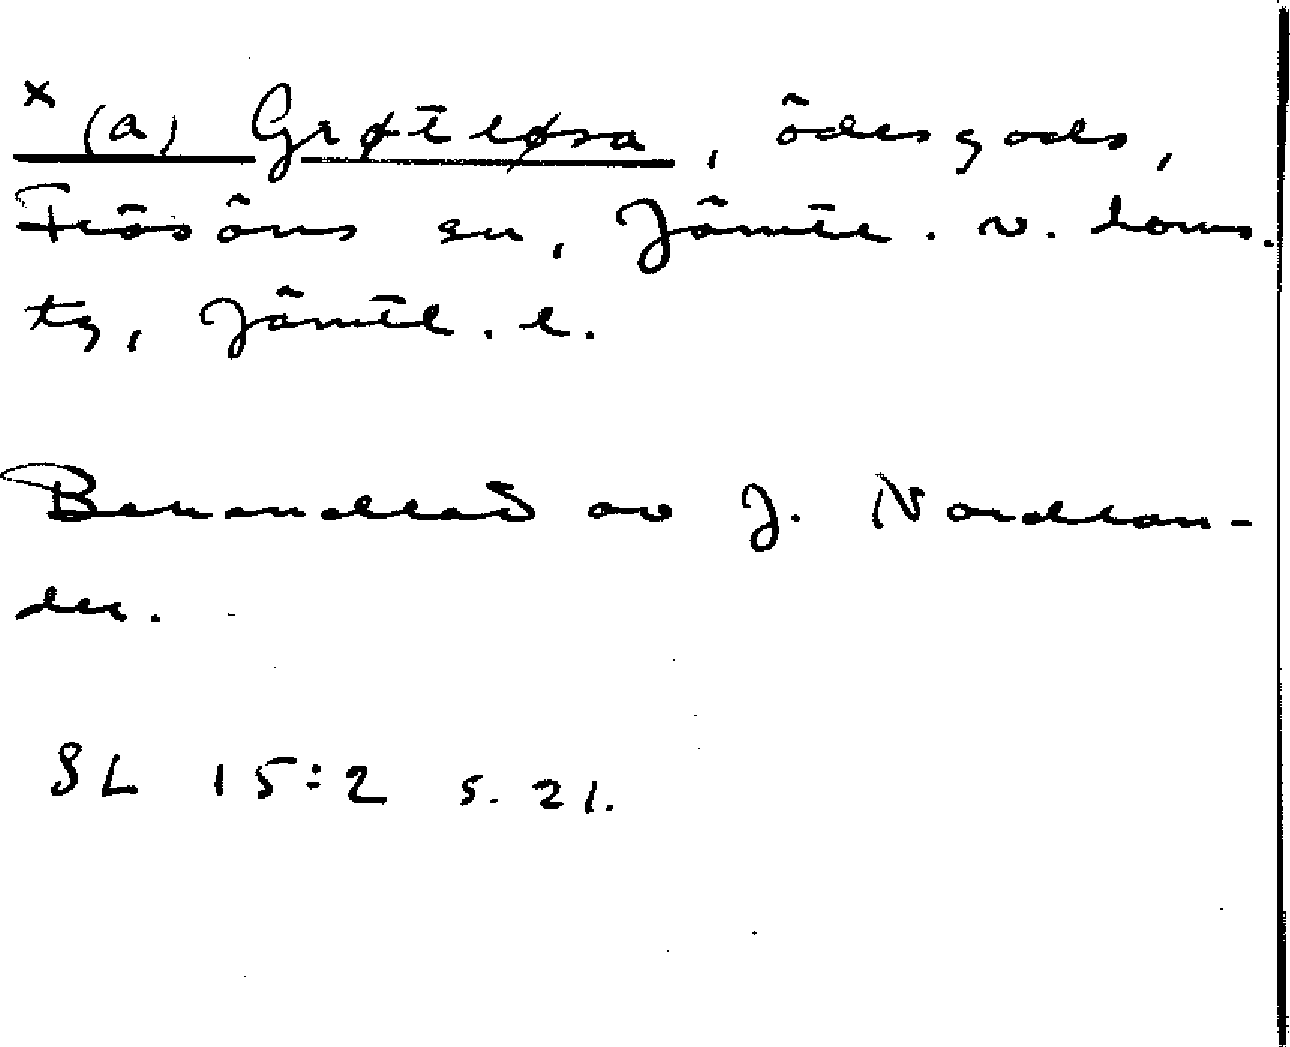 × (a) Grøtløsa, ödesgods,
Frösöns sn, Jämtl. v. doms.
tg, Jämtl. l.
Behandlat av J. Nordlan-
der.
SL 15:2 s. 21.